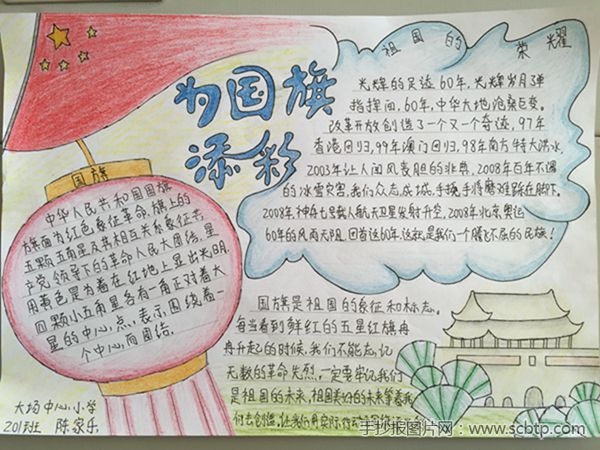 为国旗
添彩
祖国的荣耀
光辉的足迹60年,光辉岁月弹
指挥间,60年,中华大地沧桑巨变。
改革开放创造了一个又一个奇迹,97年
香港回归,99年澳门回归,98年南方特大洪水,
2003年让人闻风丧胆的非典,2008年百年不遇
的冰雪灾害,我们众志成城,手挽手将磨难踩在脚下。
2008年神舟七号载人航天卫星发射升空,2008年北京奥运
60年的风雨无阻 回首这60年,这就是我们一个腾飞不屈的民族!
国旗
中华人民共和国国旗
旗面为红色象征革命,旗上的
五颗五角星及其相互关系象征共
产党领导下的革命人民大团结,星
用黄色是为着在红地上显出光明
四颗小五角星各有一角正对着大
星的中心点,表示围绕着一
个中心而团结。
国旗是祖国的象征和标志。
每当看到鲜红的五星红旗冉
冉升起的时候,我们不能忘记
无数的革命先烈,一定要牢记我们
是祖国的未来,祖国美好的未来等着我
们去创造,让我们用实际行动
大场中心小学
201班 陈家乐
手抄报图片网:www.scbtp.com